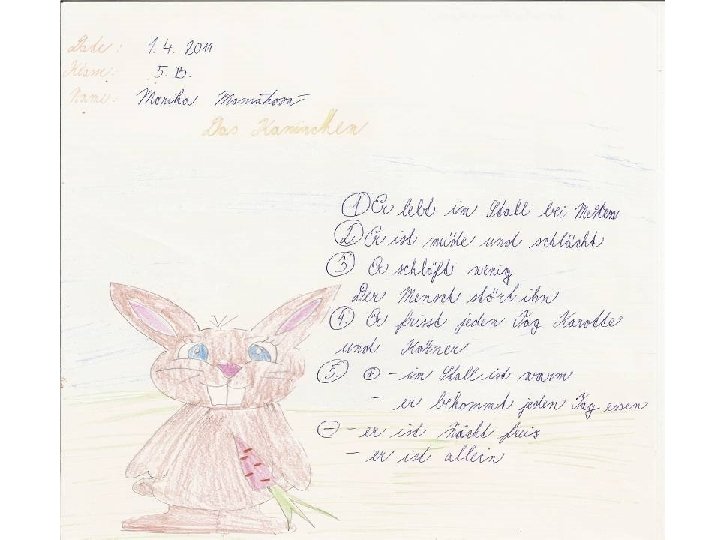 Date: 1. 4. 2011
Klasse: 5. B.
Name: Monika
Das Kaninchen
① Er lebt im Stall bei
② Er ist müde und schläckt
③ Er schläft wenig
Der Mensch stört ihn
④ Er frisst jeden Tag Karotte
und Körner
⑤ ⊕ - im Stall ist warm
- er bekommt jeden Tag essen
⊖ - er ist nicht freis
- er ist allein